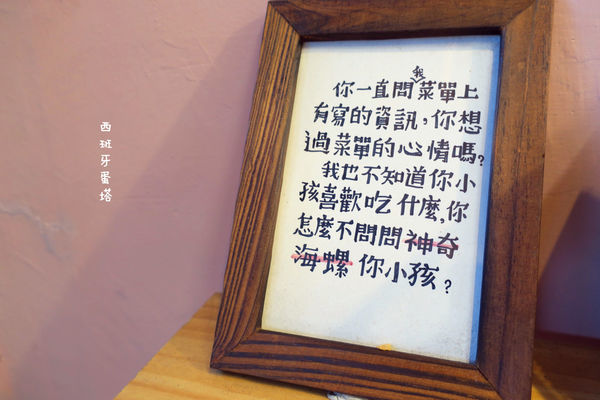 西班牙蛋塔
你一直問我菜單上
有寫的資訊，你想
過菜單的心情嗎？
我也不知道你小
孩喜歡吃什麼，你
怎麼不問問神奇
海螺你小孩？